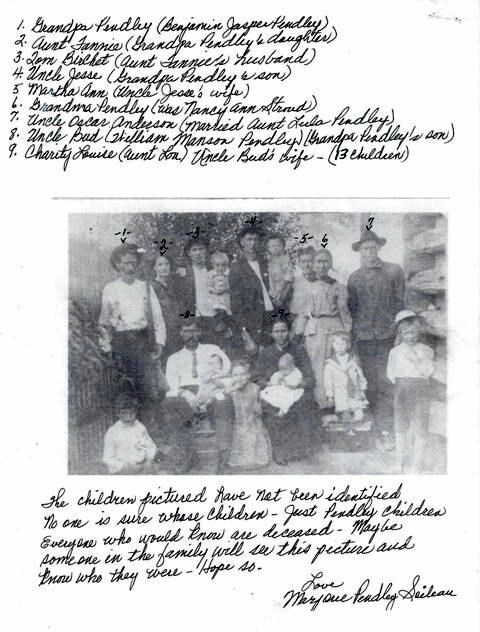 1. Grandpa Pendley (Benjamin Jasper Pendley)
2. Aunt Fannie (Grandpa Pendley's daughter)
3. Tom Birchet (Aunt Fannie's husband)
4. Uncle Jesse (Grandpa Pendley's son)
5 Martha Ann (Uncle Jesse's wife)
6. Grandma Pendley (was Nancy Ann Stroud)
7. Uncle Oscar Anderson (Married Aunt Lula Pendley)
8. Uncle Bud (William Manson Pendley) (Grandpa Pendley's son)
9. Charity Louise (Aunt Lou) Uncle Bud's wife - (13 children)
-1-
-2-
-3-
-4-
-5-
6
7
-8-
-9-
The children pictured have not been identified
No one is sure whose children - Just Pendley children
Everyone who would know are deceased - Maybe
someone in the family will see this picture and
know who they were - Hope so -
Love
Marjorie Pendley